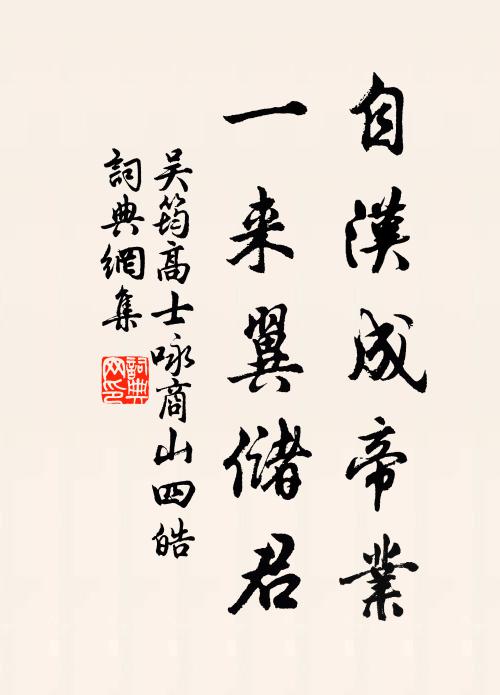 自漢成帝業
一来翼儲君
吴筠高士咏商山四皓
詞典網集
詞典網印